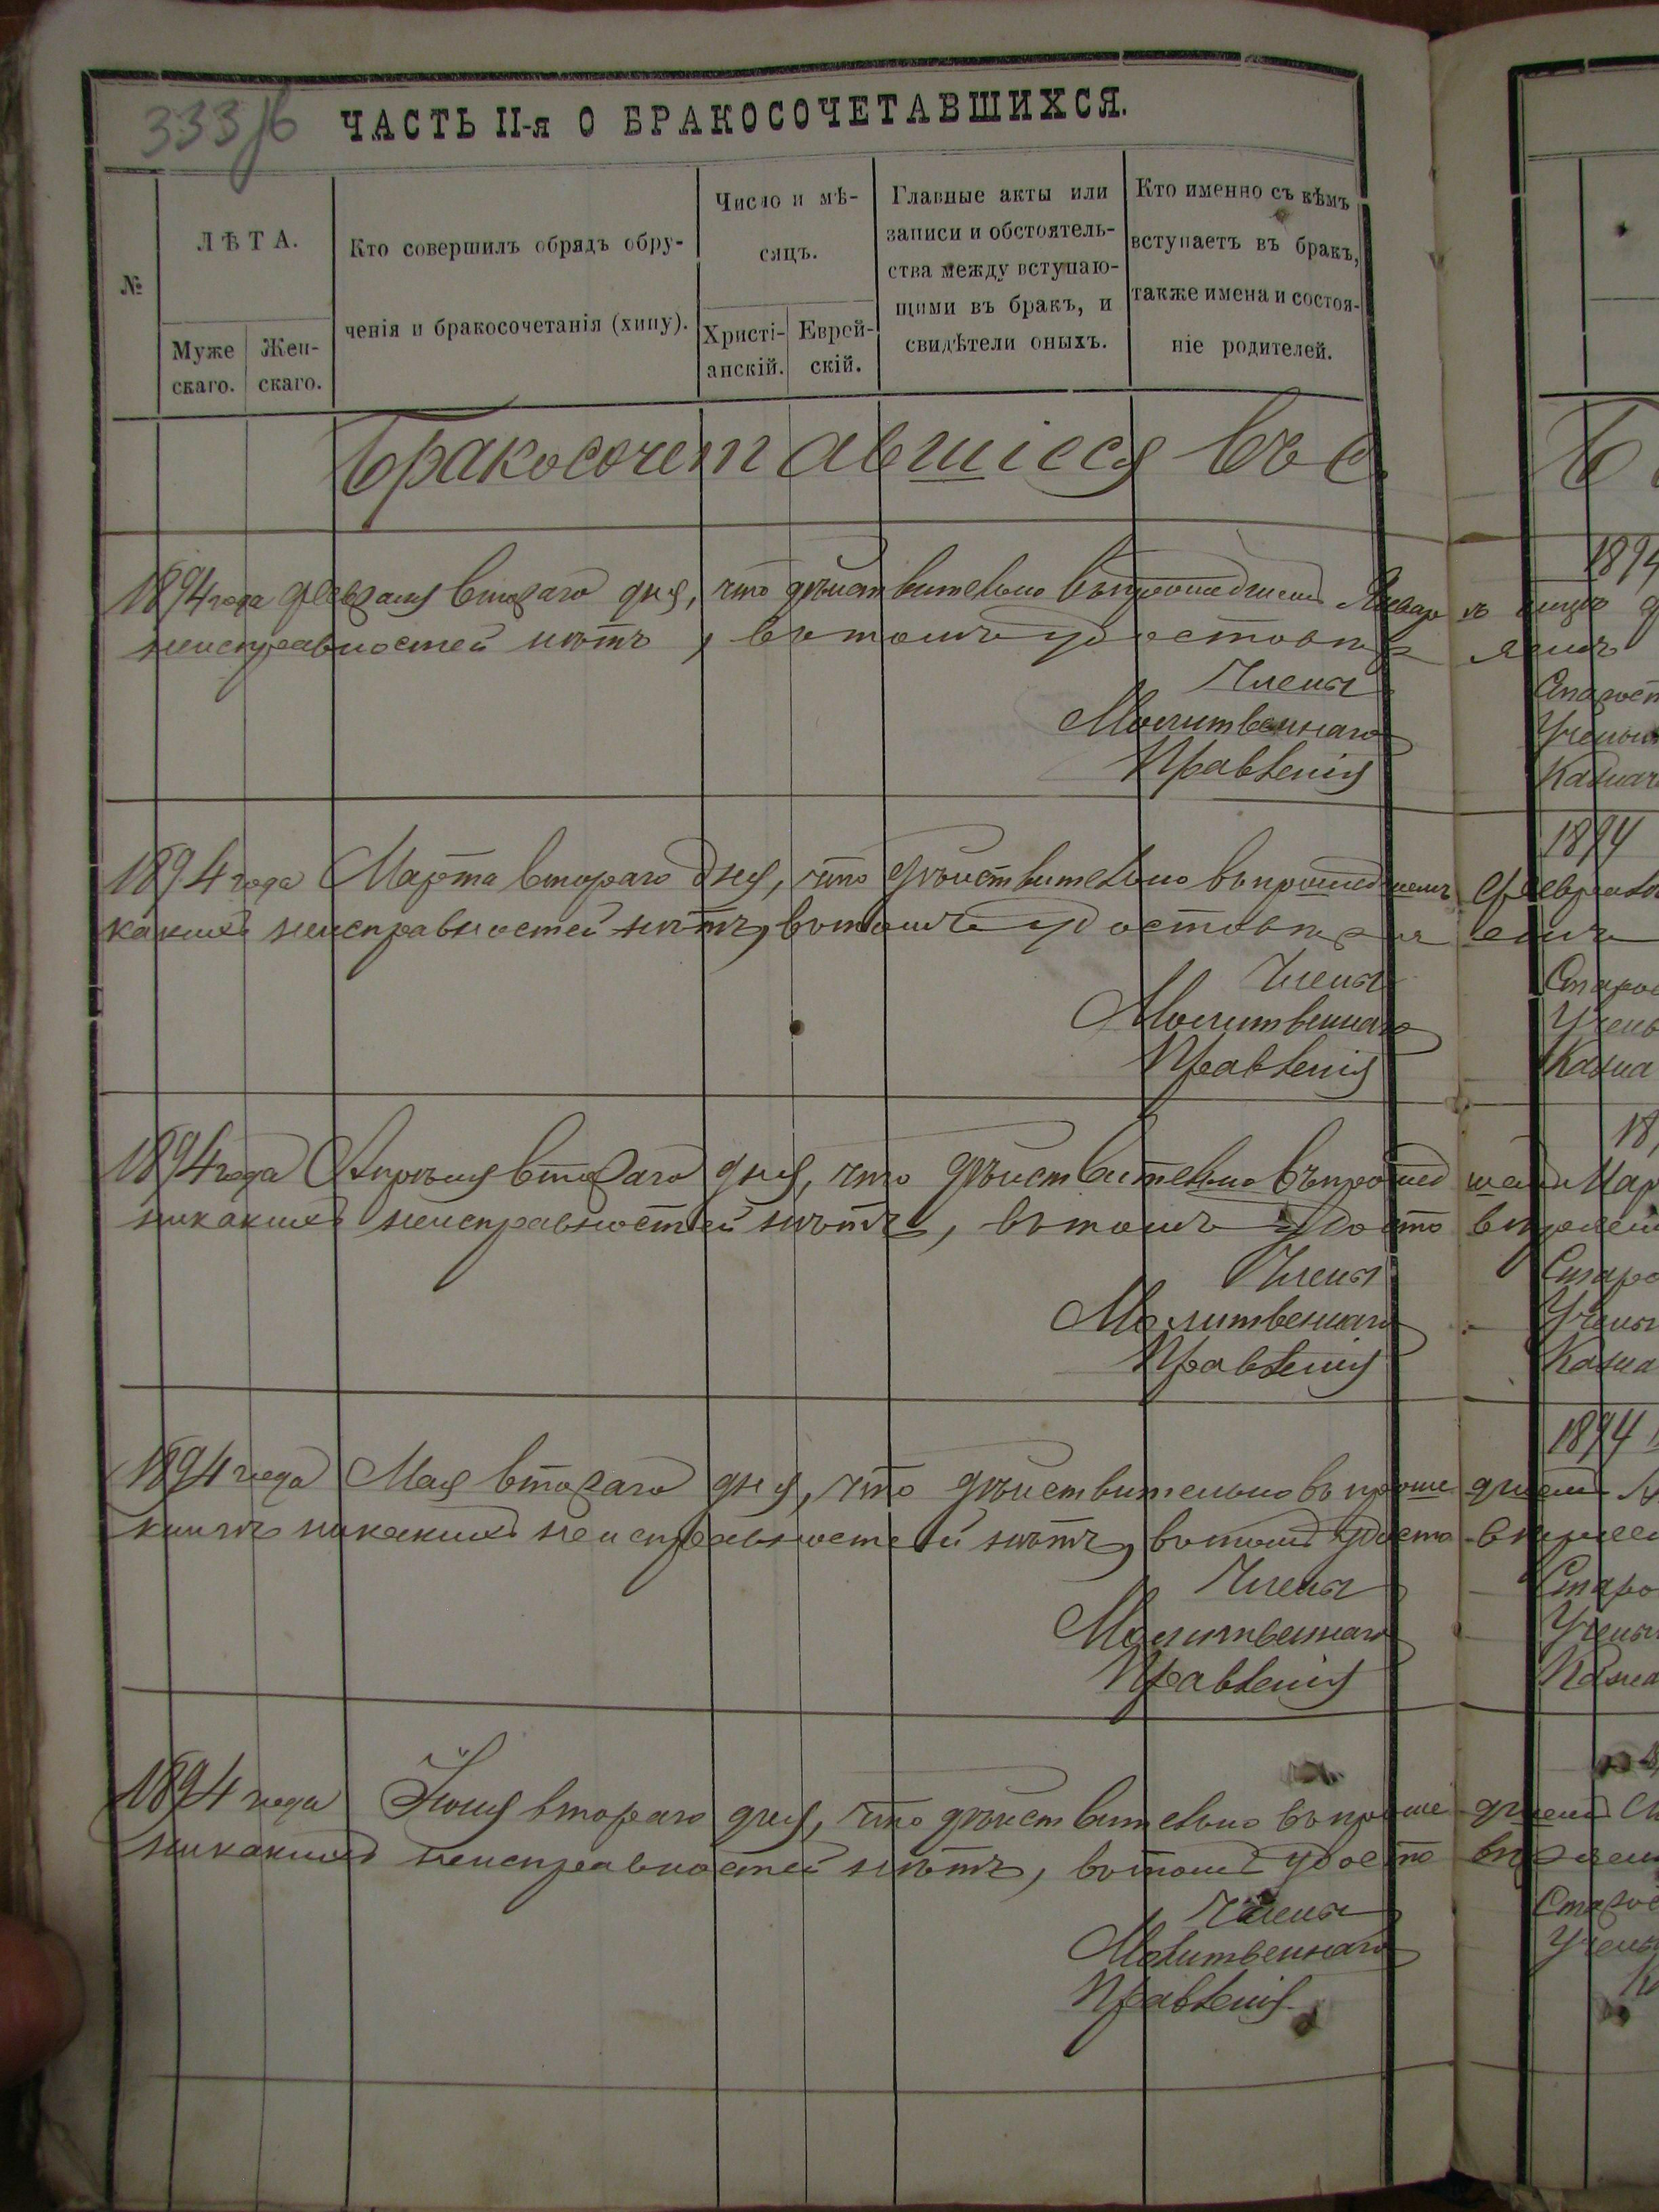 333/6
ЧАСТЬ II-я О БРАКОСОЧЕТАВШИХСЯ.
№
ЛѢТА.
Муже
скаго.
Жен-
скаго.
Кто совершилъ обрядъ обру-
ченія и бракосочетанія (хипу).
Число и мѣ-
сяцъ.
Христі-
анскій.
Еврей-
скій.
Главные акты или
записи и обстоятель-
ства между вступаю-
щими въ бракъ, и
свидѣтели оныхъ.
Кто именно съ кѣмъ
вступаетъ въ бракъ,
также имена и состоя-
ніе родителей.
Бракосочетавшіеся въ с
1894 года Февраля втораго дня, что дѣйствительно въ прошедшемъ Январѣ
неисправностей нѣтъ, въ томъ удостовѣряемъ
Члены
Молитвеннаго
Правленія
1894 года Марта втораго дня, что дѣйствительно въ прошедшемъ Февралѣ
какихъ неисправностей нѣтъ, въ томъ удостовѣряемъ
Члены
Молитвеннаго
Правленія
1894 года Апрѣля втораго дня, что дѣйствительно въ прошедшемъ Мар
никакихъ неисправностей нѣтъ, въ томъ удостовѣряем
Члены
Молитвеннаго
Правленія
1894 года Мая втораго дня, что дѣйствительно въ прошедшемъ
книгѣ никакихъ неисправностей нѣтъ, въ томъ удостовѣряем
Члены
Молитвеннаго
Правленія
1894 года Іюня втораго дня, что дѣйствительно въ прошедшемъ
никакихъ неисправностей нѣтъ, въ томъ удостовѣряем
Члены
Молитвеннаго
Правленія
1894
Старост
Учены
Казнач
1894
Старос
Учены
Казна
18
Старо
Учены
Казна
1894
Старо
Учены
Казна
Старос
Учены